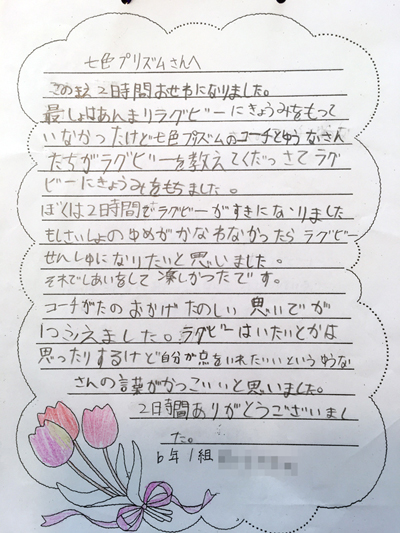 七色プリズムさんへ
この前2時間おせわになりました。
最しょはあんまりラグビーにきょうみをもって
いなかったけど七色プリズムのコーチとゆうなさん
たちがラグビーを教えてくだっさてラグ
ビーにきょうみをもちました。
ぼくは2時間でラグビーがすきになりました
もしさいしょのゆめがかなわなかったらラグビー
せんしゅになりたいと思いました。
それでしあいをして楽しかったです。
コーチがたのおかげたのしい思いでが
ふえました。ラグビーはいたいとかは
思ったりするけど自分が点をいれたいいというゆうな
さんの言葉がかっこいいと思いました。
2時間ありがとうございまし
た。
6年1組